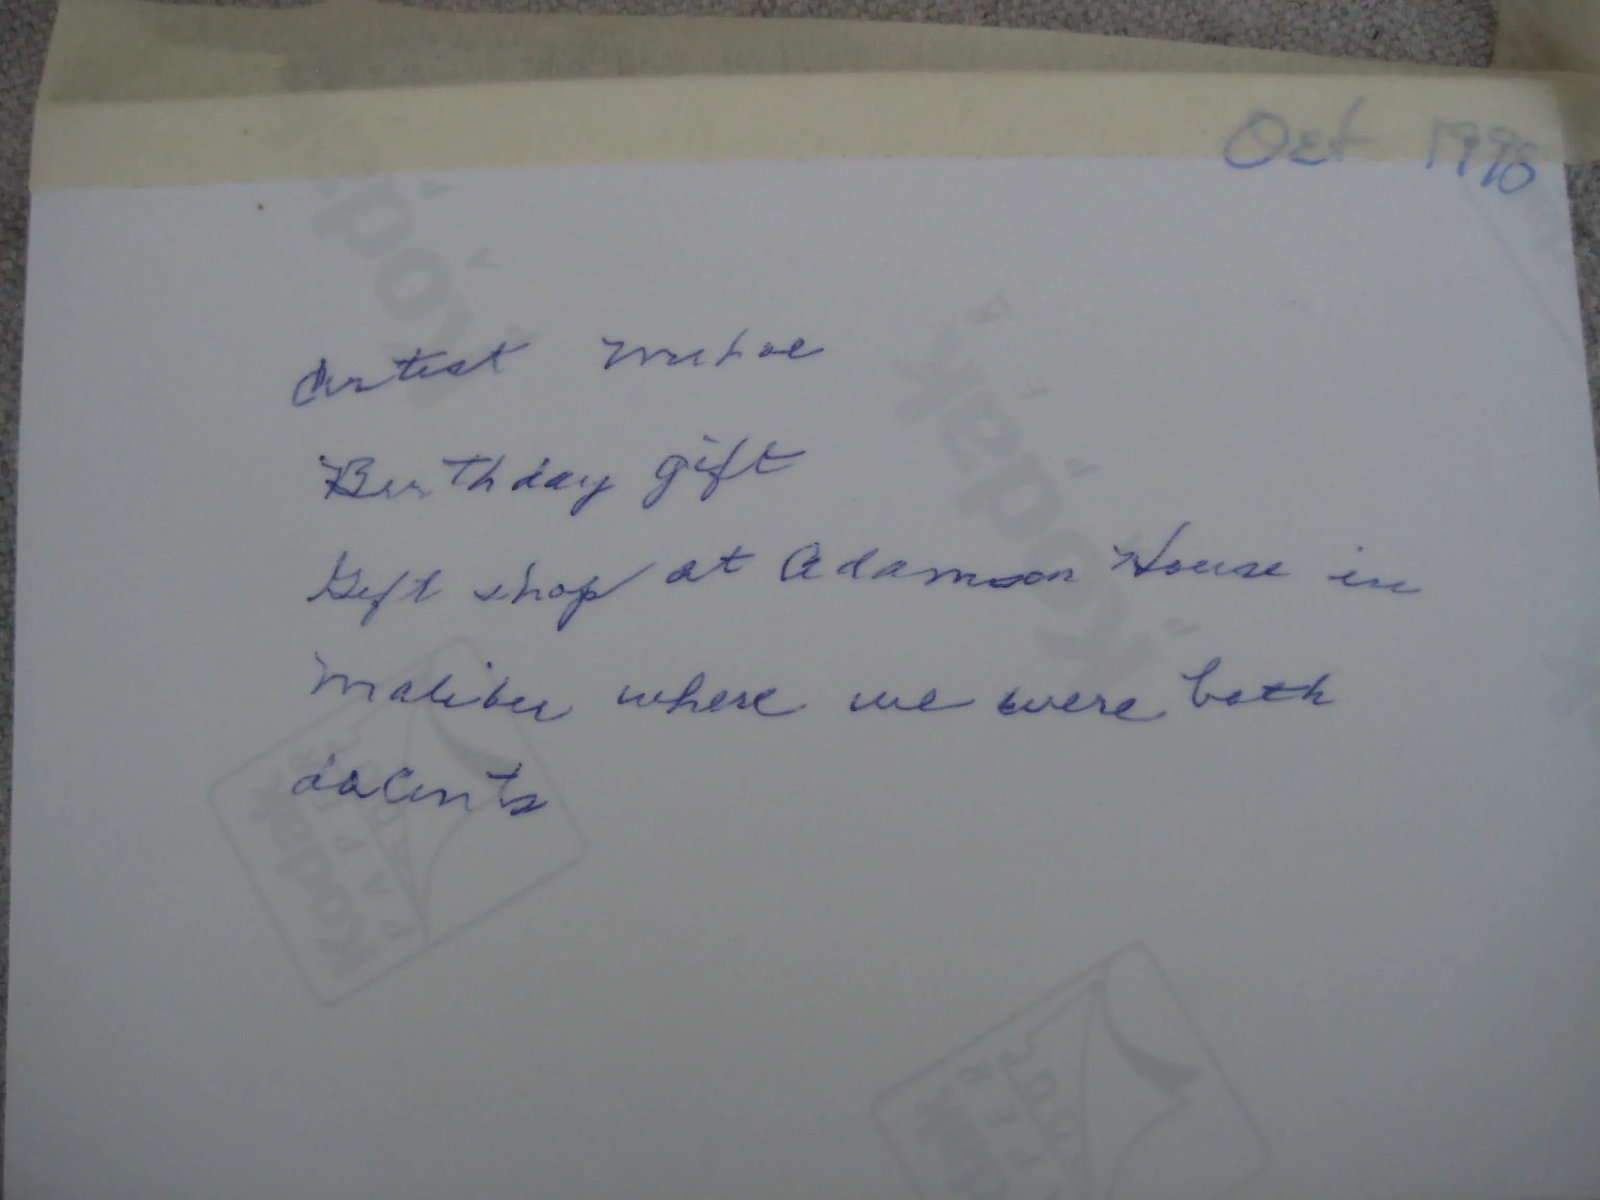 Oct 1996
Artist
Birthday gift
Gift shop at Adamson House in
Malibu where we were both
docents
Kodak
Kodak
Kodak
PAPER